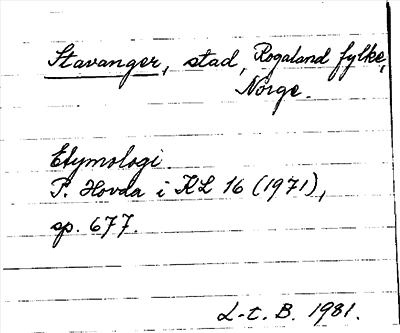 Stavanger, stad, Rogaland fylke,
Norge.
Etymologi.
P. Hovda i KL 16 (1971),
sp. 677.
L-t. B. 1981.